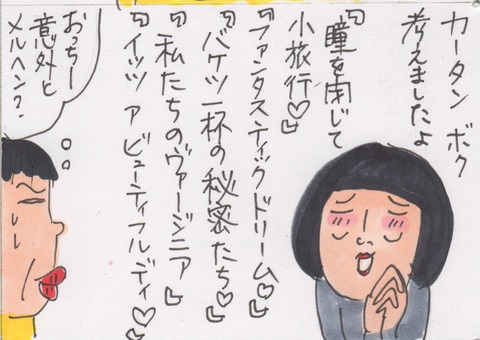 カータン ボク
考えましたよ
『瞳を閉じて
小旅行♡』
『ファンタスティックドリーム♡』
『バケツ一杯の秘密たち♡』
『私たちのヴァージニア』
『イッツ ア ビューティフルデイ♡』
おっちー
意外と
メルヘン?